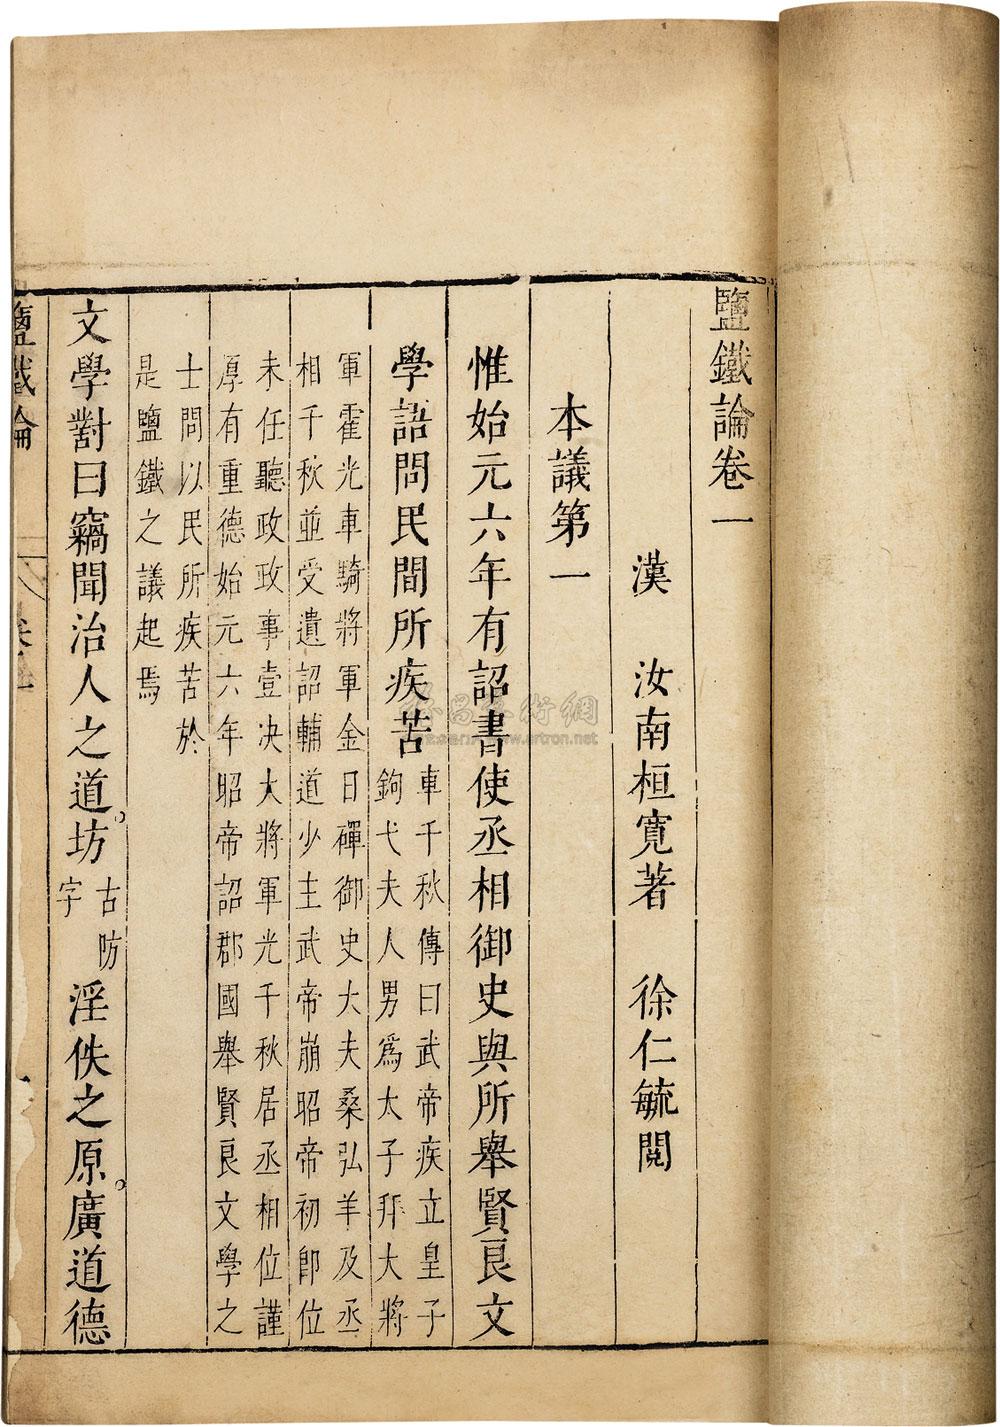 鹽鐵論卷一
漢　汝南桓寬著　徐仁毓閱
本議第一
惟始元六年有詔書使丞相御史與所舉賢良文
學語問民間所疾苦
車千秋傳曰武帝疾立皇子
鉤弋夫人男爲太子拜大將
軍霍光車騎將軍金日磾御史大夫桑弘羊及丞
相千秋並受遺詔輔道少主武帝崩昭帝初即位
未任聽政政事壹决大將軍光千秋居丞相位謹
厚有重德始元六年昭帝詔郡國舉賢良文學之
士問以民所疾苦於
是鹽鐵之議起焉
文學對曰竊聞治人之道。坊
古防
字
淫佚之原。廣道德
鹽鐵論
卷一
www.artron.net